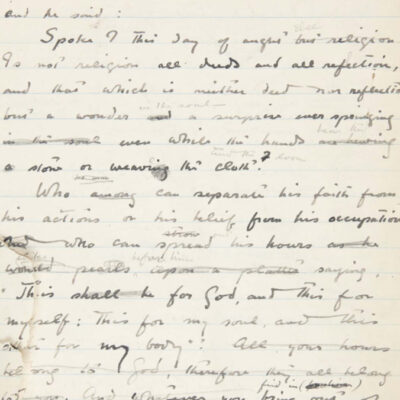 and he said:
Spoke I this day of aught but religion
Is not religion all deeds and all reflection,
and that which is neither deed nor reflection
in the soul
but a wonder and a surprise ever springing
hew the
in the soul even while the hands are hewing
tend the loom
a stone or weaving the cloth?
Who among can separate his faith from
his actions or his belief from his occupation
strew
And who can spread his hours as he
before him
would pearls upon a platter saying,
"This shall be for God, and this for
myself: This for my soul, and this
for my body"? All your hours
belong to God, therefore they all belong
find in
to you. And whatever you bring out of